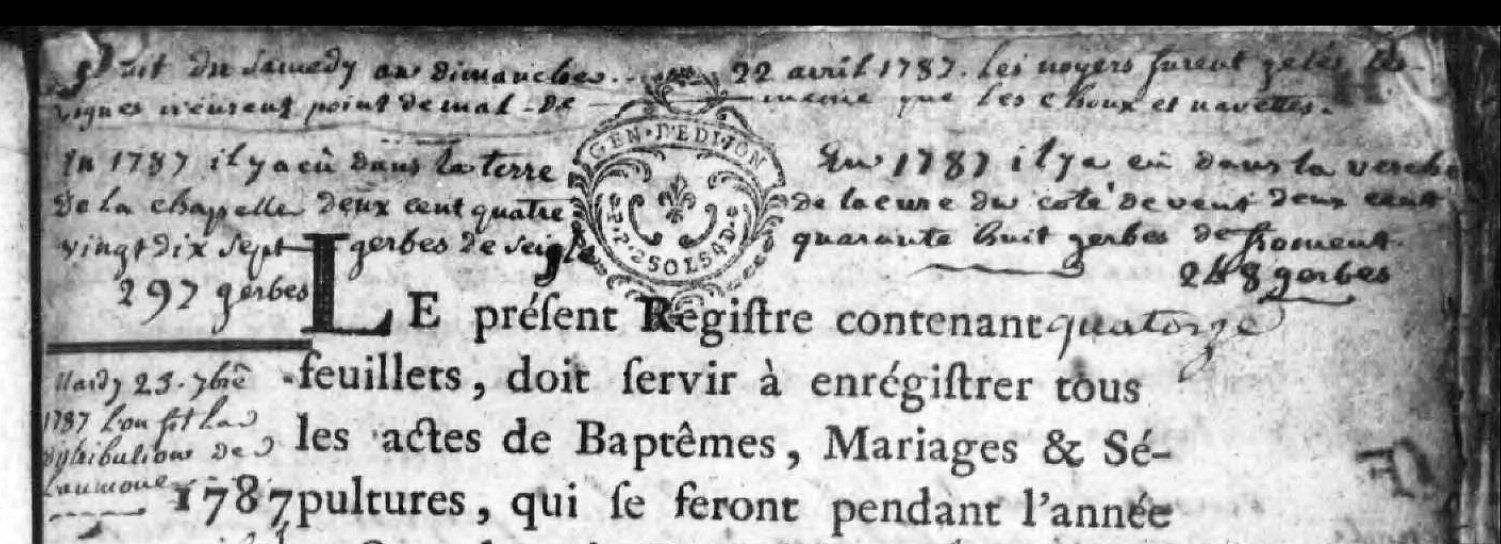 Nuit du Samedy au dimanche .. 22 avril 1787. les noyers furent gelés, les
vignes n'eurent point de mal - de même que les choux et navettes.
GEN · D'EDIJON
2 · SOLS 4 D
En 1787 il y a eû dans la terre
de la chapelle deux cent quatre
vingt dix sept gerbes de seigle
297 gerbes
En 1787 il y a eû dans la verch
de la cure du coté de vent deux cent
quarante huit gerbes de froment.
248 gerbes
LE préſent Regiſtre contenant quatorze
feuillets, doit ſervir à enrégiſtrer tous
les actes de Baptêmes, Mariages & Sé-
pultures, qui ſe feront pendant l'année
Mardy 25. 7bre
1787 l'on fit la
distribution de
l'aumone
1787